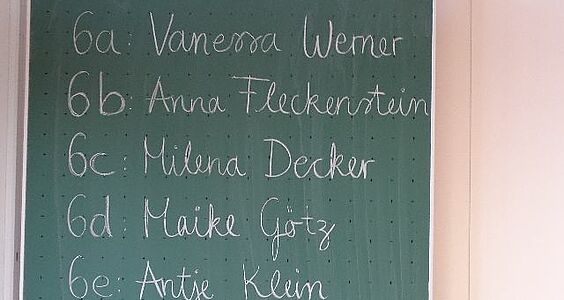 6a: Vanessa Werner
6b: Anna Fleckenstein
6c: Milena Decker
6d: Maike Götz
6e: Antje Klein